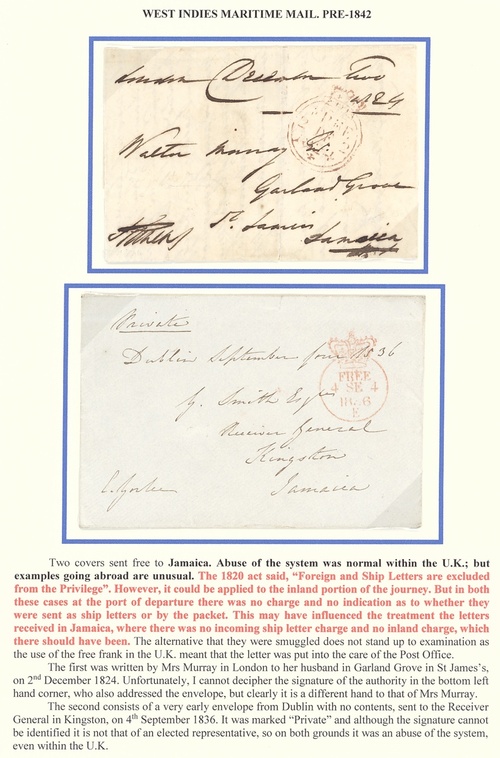 WEST INDIES MARITIME MAIL. PRE-1842
London December Two
1824
Walter Murray Esq
Garland Grove
St. James's
Jamaica
Private
Dublin September four 1836
FREE
4 SE 4
1836
E
G. Smith Esqre
Receiver General
Kingston
Jamaica
Two covers sent free to Jamaica. Abuse of the system was normal within the U.K.; but
examples going abroad are unusual. The 1820 act said, “Foreign and Ship Letters are excluded
from the Privilege”. However, it could be applied to the inland portion of the journey. But in both
these cases at the port of departure there was no charge and no indication as to whether they
were sent as ship letters or by the packet. This may have influenced the treatment the letters
received in Jamaica, where there was no incoming ship letter charge and no inland charge, which
there should have been. The alternative that they were smuggled does not stand up to examination as
the use of the free frank in the U.K. meant that the letter was put into the care of the Post Office.
The first was written by Mrs Murray in London to her husband in Garland Grove in St James’s,
on 2nd December 1824. Unfortunately, I cannot decipher the signature of the authority in the bottom left
hand corner, who also addressed the envelope, but clearly it is a different hand to that of Mrs Murray.
The second consists of a very early envelope from Dublin with no contents, sent to the Receiver
General in Kingston, on 4th September 1836. It was marked “Private” and although the signature cannot
be identified it is not that of an elected representative, so on both grounds it was an abuse of the system,
even within the U.K.